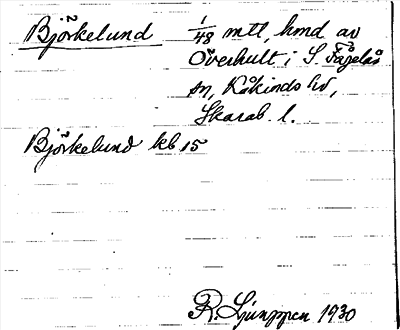 Björkelund 1/48 mtl, hmd av
Överhult i S. Fågelås
sn, Kåkinds hd,
Skarab. l.
Björkelund kb 15
R. Ljunggren 1930